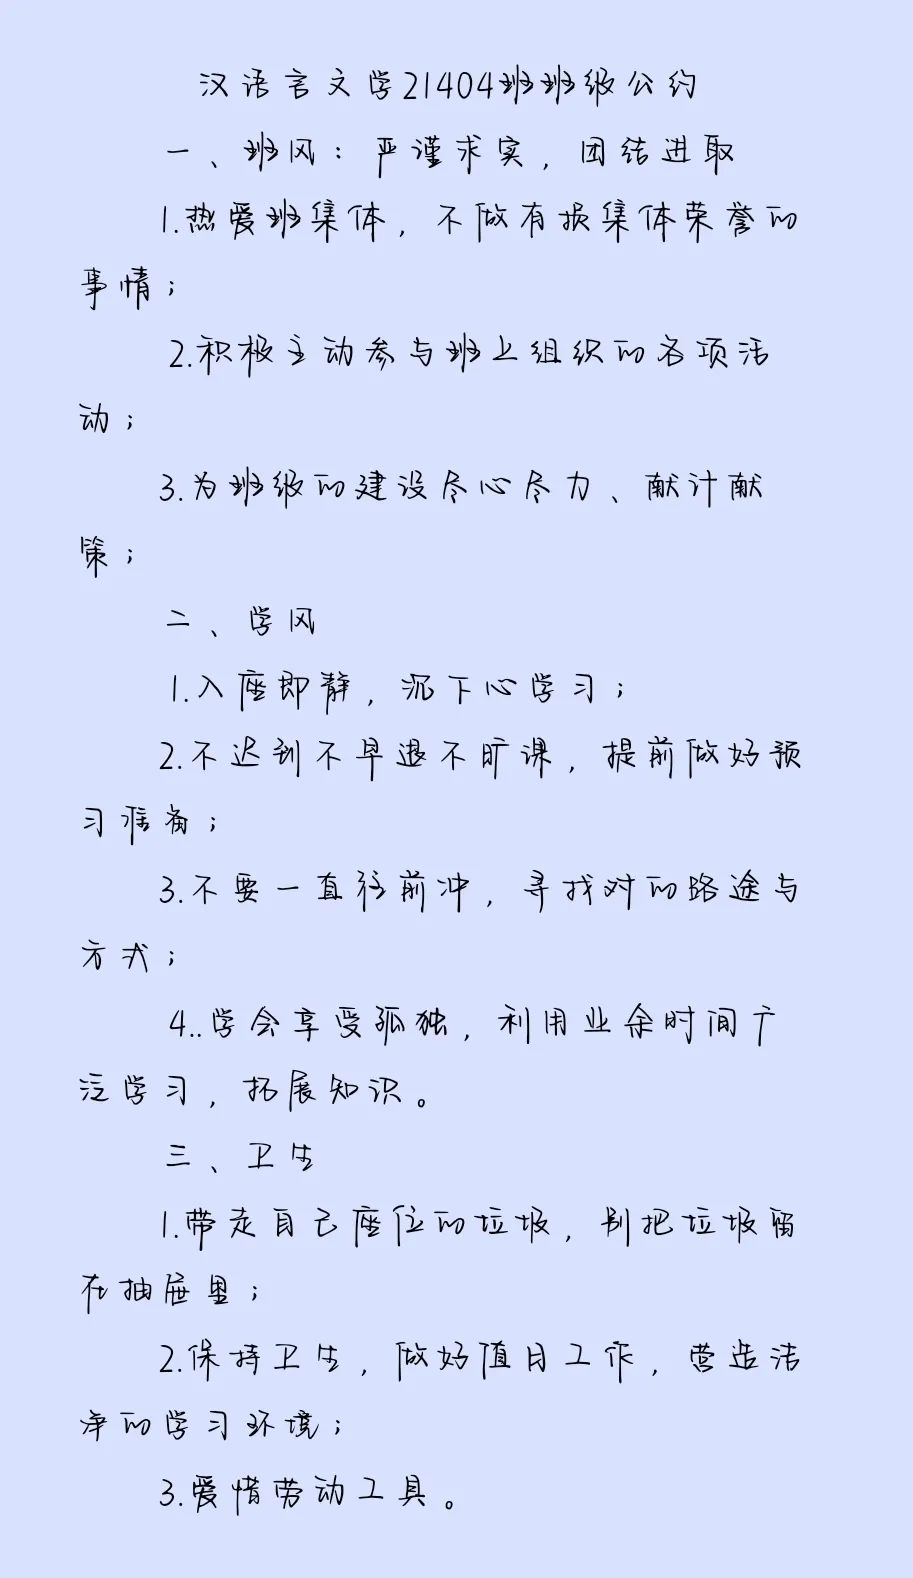 汉语言文学21404班班级公约
一、班风：严谨求实，团结进取
1.热爱班集体，不做有损集体荣誉的
事情；
2.积极主动参与班上组织的各项活
动；
3.为班级的建设尽心尽力、献计献
策；
二、学风
1.入座即静，沉下心学习；
2.不迟到不早退不旷课，提前做好预
习准备；
3.不要一直往前冲，寻找对的路途与
方式；
4..学会享受孤独，利用业余时间广
泛学习，拓展知识。
三、卫生
1.带走自己座位的垃圾，别把垃圾留
在抽屉里；
2.保持卫生，做好值日工作，营造洁
净的学习环境；
3.爱惜劳动工具。